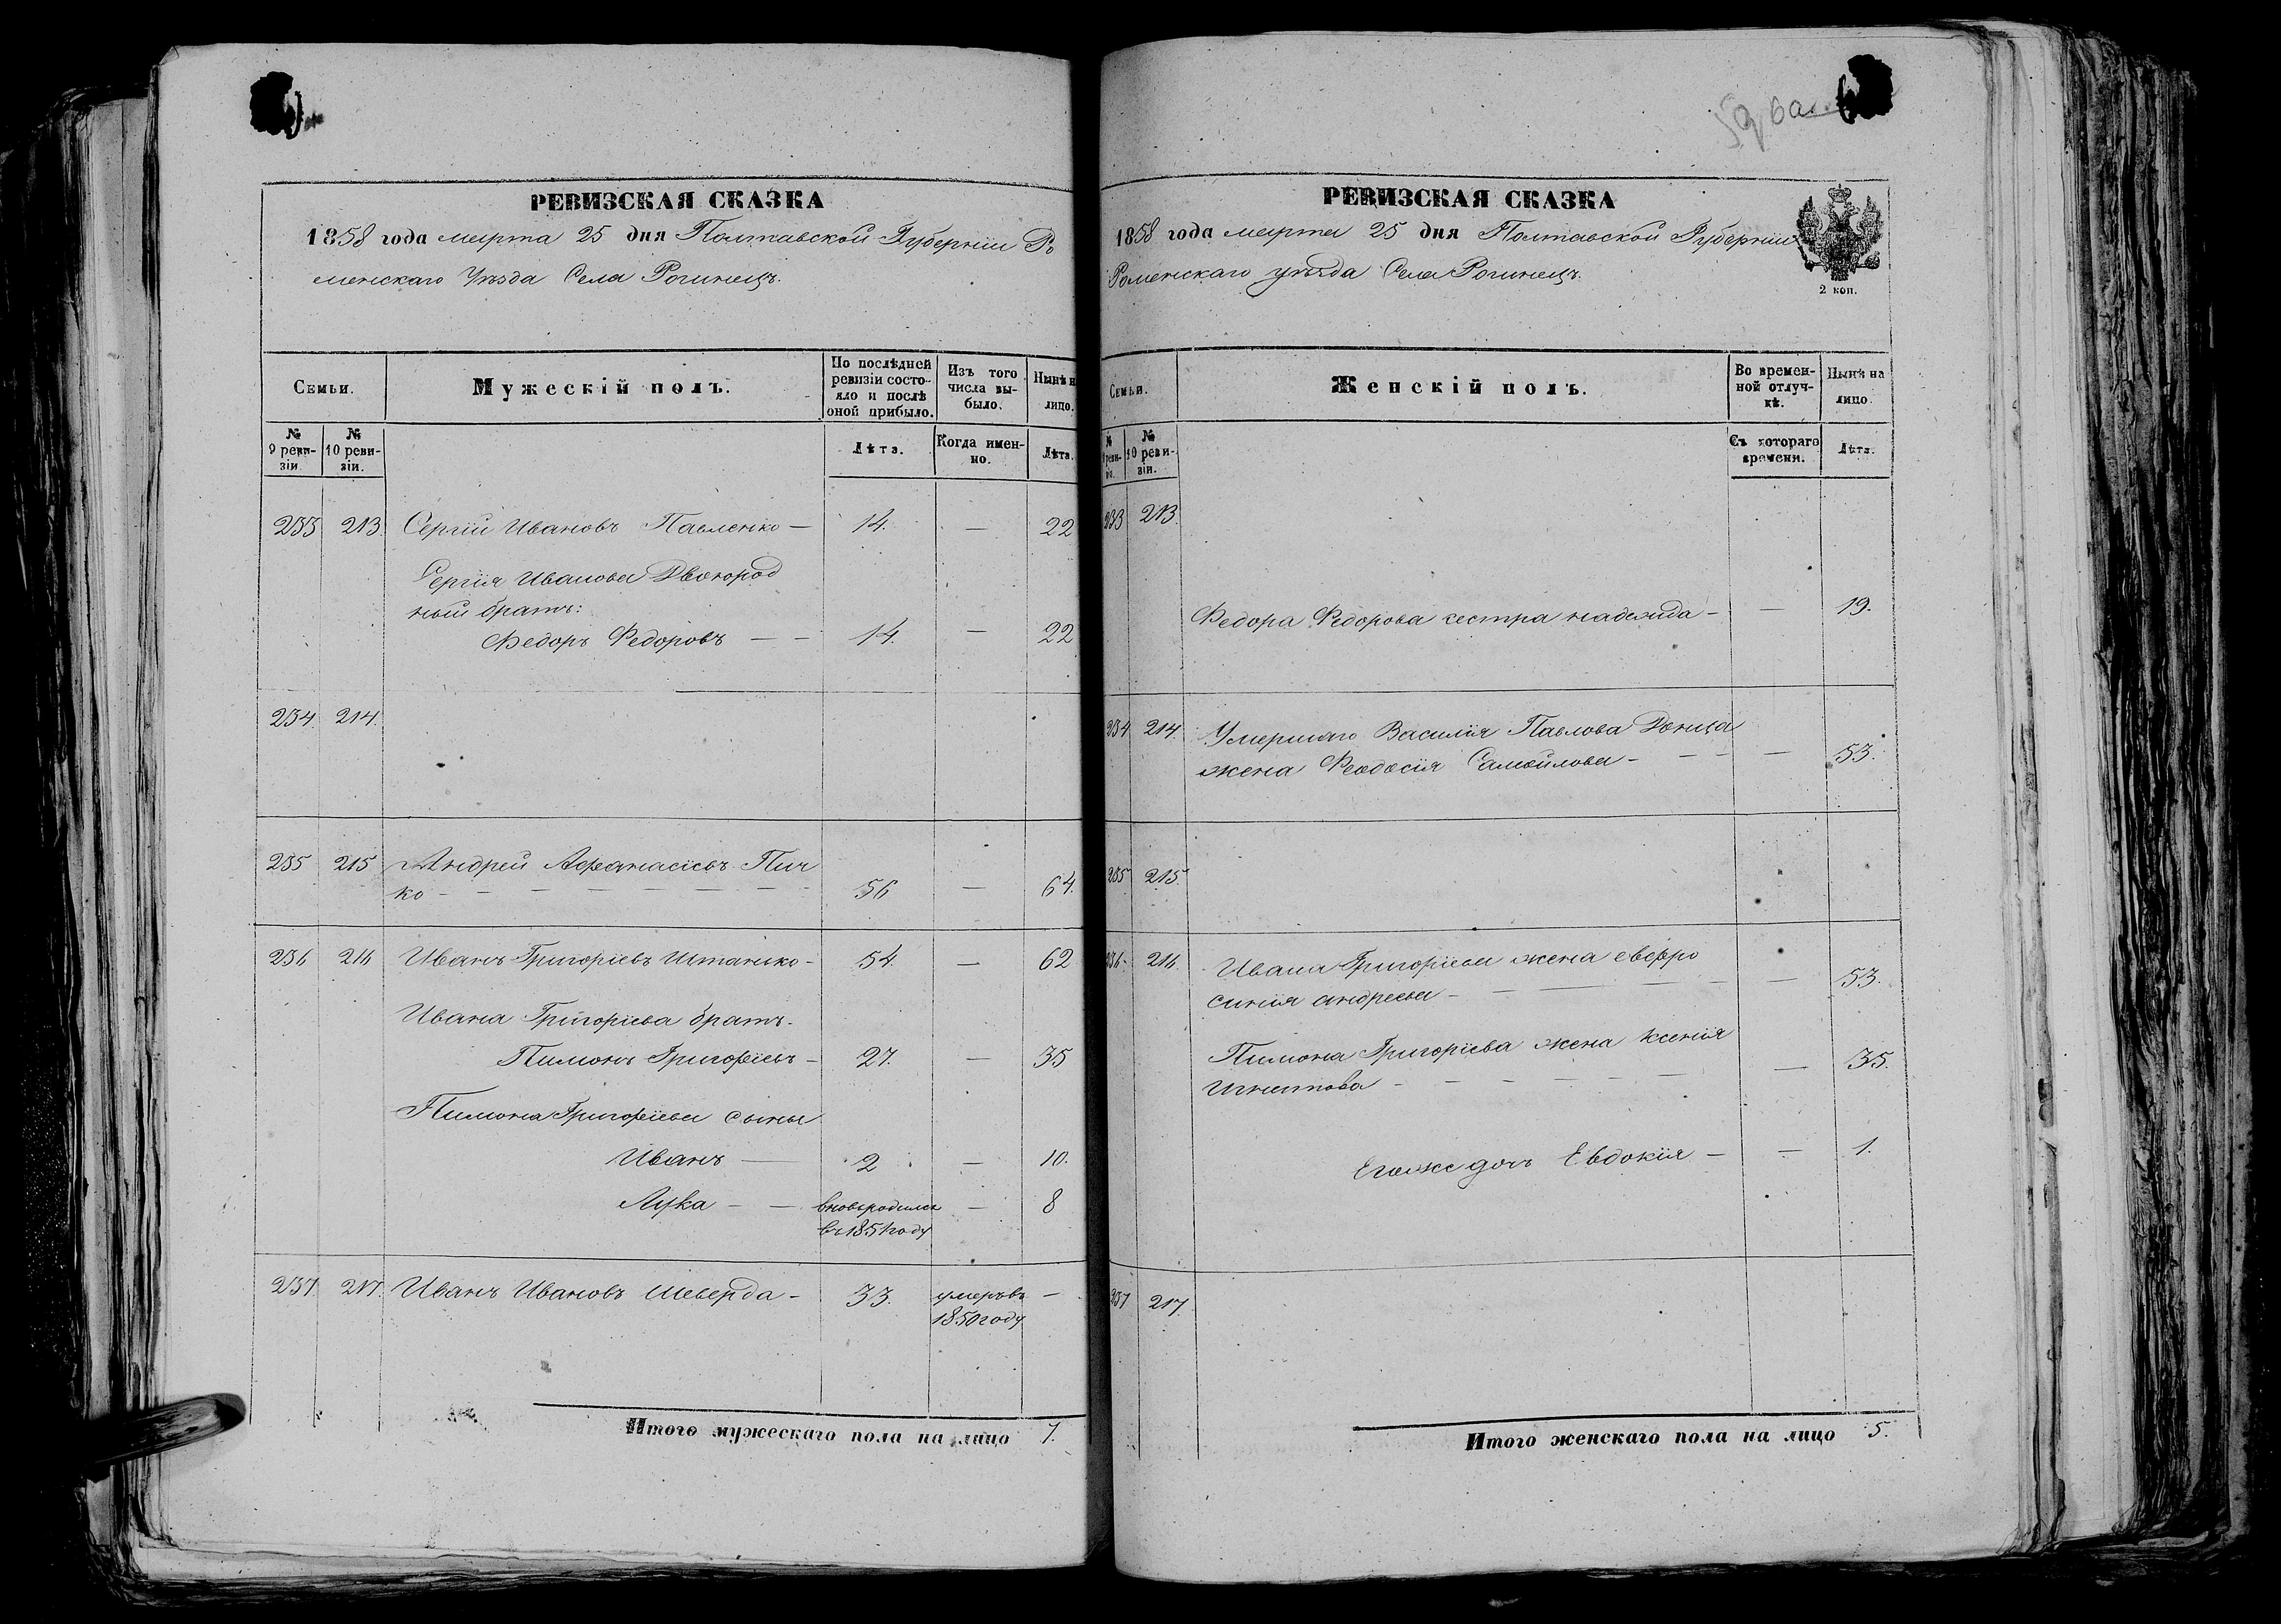 59 об.
РЕВИЗСКАЯ СКАЗКА
1858 года марта 25 дня Полтавской Губернии Ро
менскаго Уѣзда Села Рогинецъ.
Семьи.
Мужескій полъ.
По послѣдней ревизіи состояло и послѣ оной прибыло.
Изъ того числа выбыло.
Нынѣ на лицо.
№ 9 ревизіи.
№ 10 ревизіи.
Лѣта.
Когда именно.
Лѣта.
233 213. Сергій Ивановъ Павленко — 14. — 22
Сергія Иванова Двоюрод
ный братъ:
Федоръ Федоровъ — — 14. — 22
234 214.
235 215 Андрей Афанасіевъ Пич
ко — — — — — — — 56 — 64.
236 216 Иванъ Григоріевъ Штанько — 54. — 62
Ивана Григоріева братъ.
Пимонъ Григоріевъ — 27. — 35
Пимона Григоріева сыны
Иванъ — 2 — 10.
Лука — — вновьродился — 8
въ 1851году
237 217. Иванъ Ивановъ Шеверда — 33. умеръ въ —
1850году
Итого мужескаго пола на лицо 7.
РЕВИЗСКАЯ СКАЗКА
1858 года марта 25 дня Полтавской Губернии
Роменскаго уѣзда Села Рогинецъ.
2 коп.
Семьи.
Женскій полъ.
Во временной отлучкѣ.
Нынѣ на лицо.
№ 10 ревизіи.
Съ котораго времени.
Лѣта.
233 213.
Федора Федорова сестра надежда — — 19.
234 214. Умершаго Василія Павлова Донца
жена Феодосія Самойлова — — — — 53.
235 215.
236. 216. Ивана Григоріева жена евфро
синія андреева — — — — — — 53.
Пимона Григоріева жена ксенія
Игнатова — — — — — — — 35.
Егоже дочь Евдокія — — 1.
237 217.
Итого женскаго пола на лицо 5.